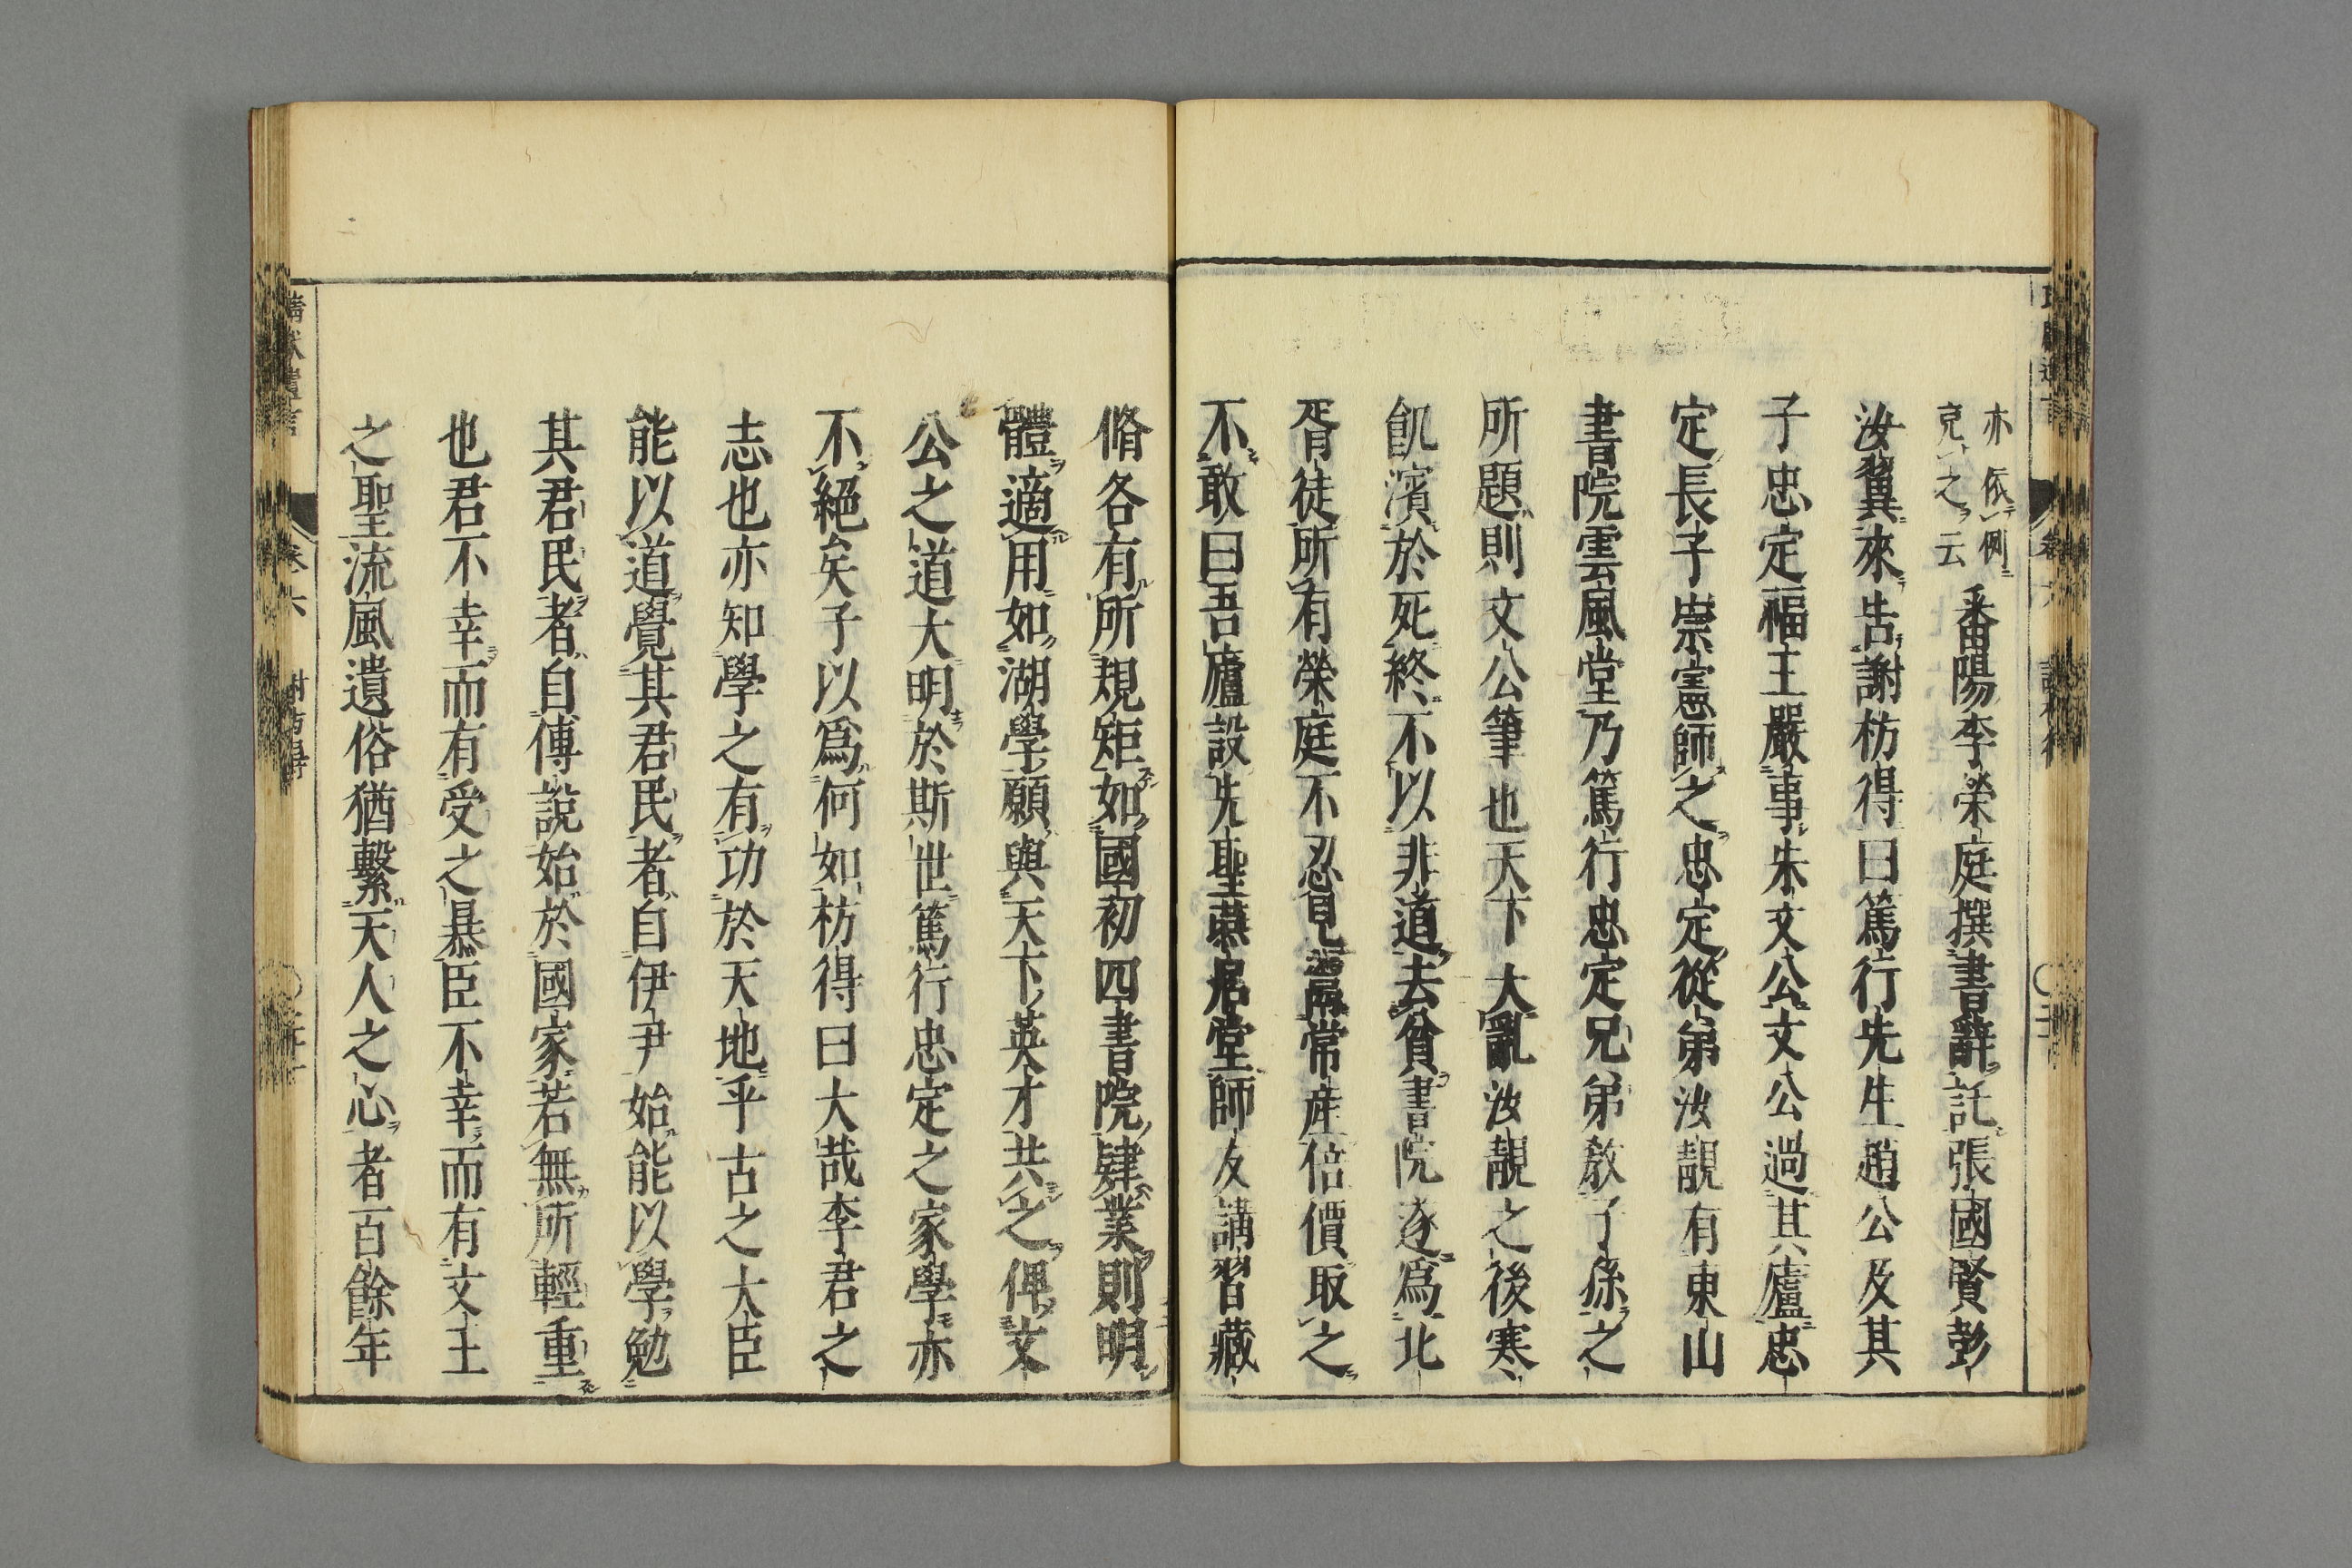 亦依例
克之云
番陽李榮庭撰書辭託張國賢彭
汝翼來告謝枋得曰篤行先生趙公及其
子忠定福王嚴事朱文公文公過其廬忠
定長子崇憲師之忠定從弟汝靚有東山
書院雲風堂乃篤行忠定兄弟教子孫之
所題則文公筆也天下大亂汝靚之後寒
飢濱於死終不以非道去貧書院逐爲北
胥徒所有榮庭不忍見需常産倍價取之
不敢曰吾廬設先聖燕居堂師友講習藏
脩各有所規矩如國初四書院肄業則明
體適用如湖學願與天下英才共之俾文
公之道大明於斯世篤行忠定之家學亦
不絕矣子以爲何如枋得曰大哉李君之
志也亦知學之有功於天地乎古之大臣
能以道覺其君民者自伊尹始能以學勉
其君民者自傅說始於國家若無所輕重
也君不幸而有受之暴臣不幸而有文王
之聖流風遺俗猶繫天人之心者百餘年
卷六
謝枋得